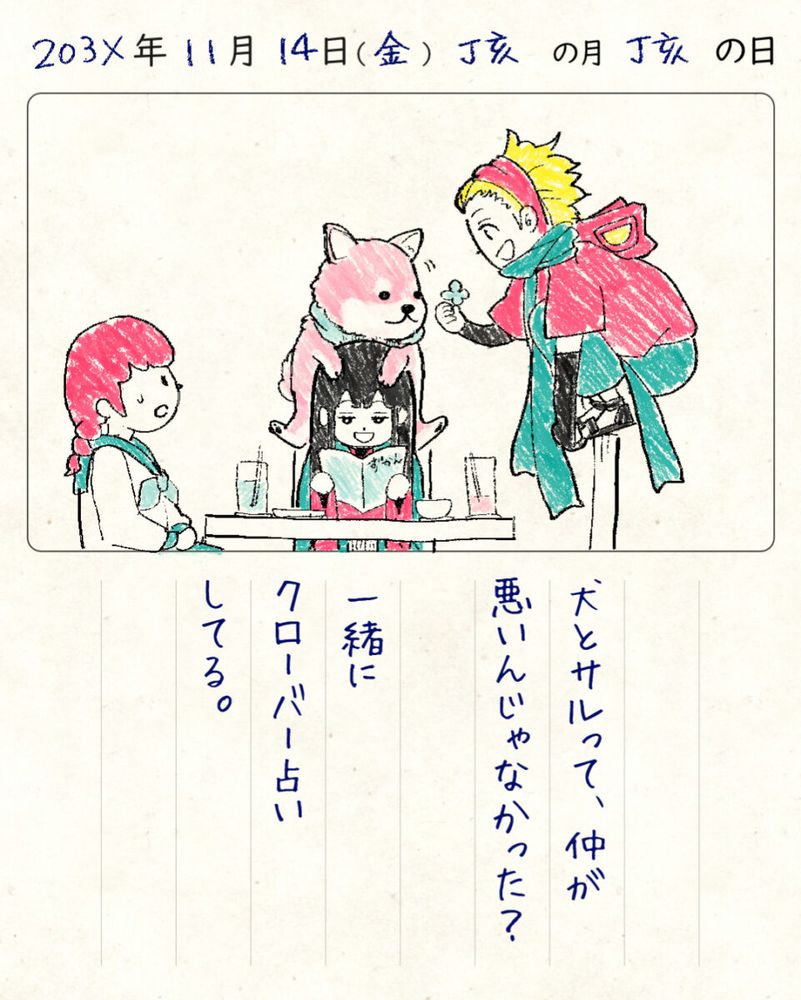 203X年 11月 14日(金) 丁亥 の月 丁亥 の日
ずかん
犬とサルって、仲が
悪いんじゃなかった?
一緒に
クローバー占い
してる。